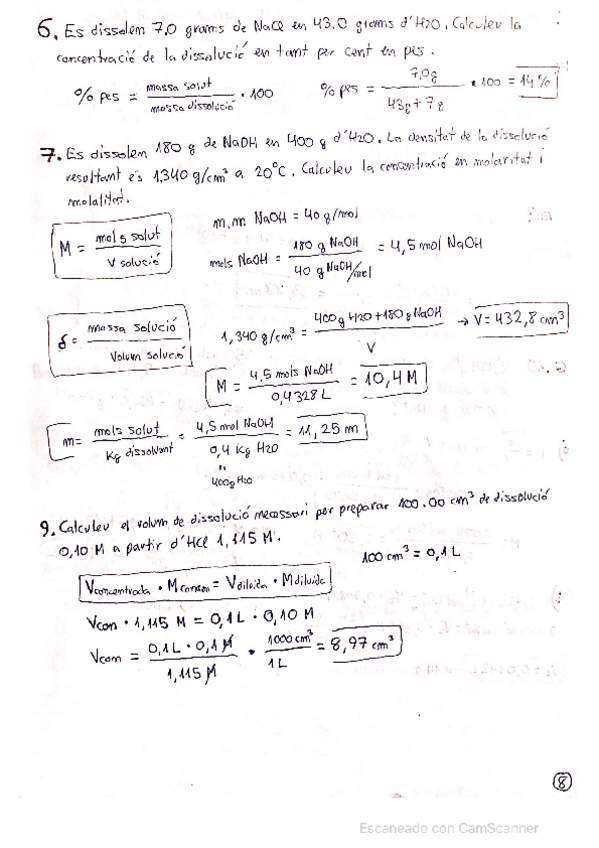 6. Es dissolem 7,0 grams de NaCl en 43.0 grams d'H2O. Calculeu la
concentració de la dissolució en tant per cent en pes.
% pes = massa solut / massa dissolució · 100 % pes = 7,0g / 43g + 7g · 100 = 14%
7. Es dissolem 180 g de NaOH en 400 g d'H2O. La densitat de la dissolució
resultant és 1,340 g/cm³ a 20°C. Calculeu la concentració en molaritat i
molalitat.
M = mols solut / V solució
m.m. NaOH = 40 g/mol
mols NaOH = 180 g NaOH / 40 g NaOH/mol = 4,5 mol NaOH
δ = massa solució / Volum solució
1,340 g/cm³ = 400g H2O + 180g NaOH / V → V = 432,8 cm³
M = 4,5 mols NaOH / 0,4328 L = 10,4 M
m = mols solut / Kg dissolvant = 4,5 mol NaOH / 0,4 Kg H2O = 11,25 m
"
400g H2O
9. Calculeu el volum de dissolució necessari per preparar 100.00 cm³ de dissolució
0,10 M a partir d'HCl 1,115 M.
100 cm³ = 0,1 L
Vconcentrada · Mconcen = Vdiluida · Mdiluida
Vcon · 1,115 M = 0,1 L · 0,10 M
Vcon = 0,1 L · 0,1 M / 1,115 M · 1000 cm³ / 1 L = 8,97 cm³
8
Escaneado con CamScanner